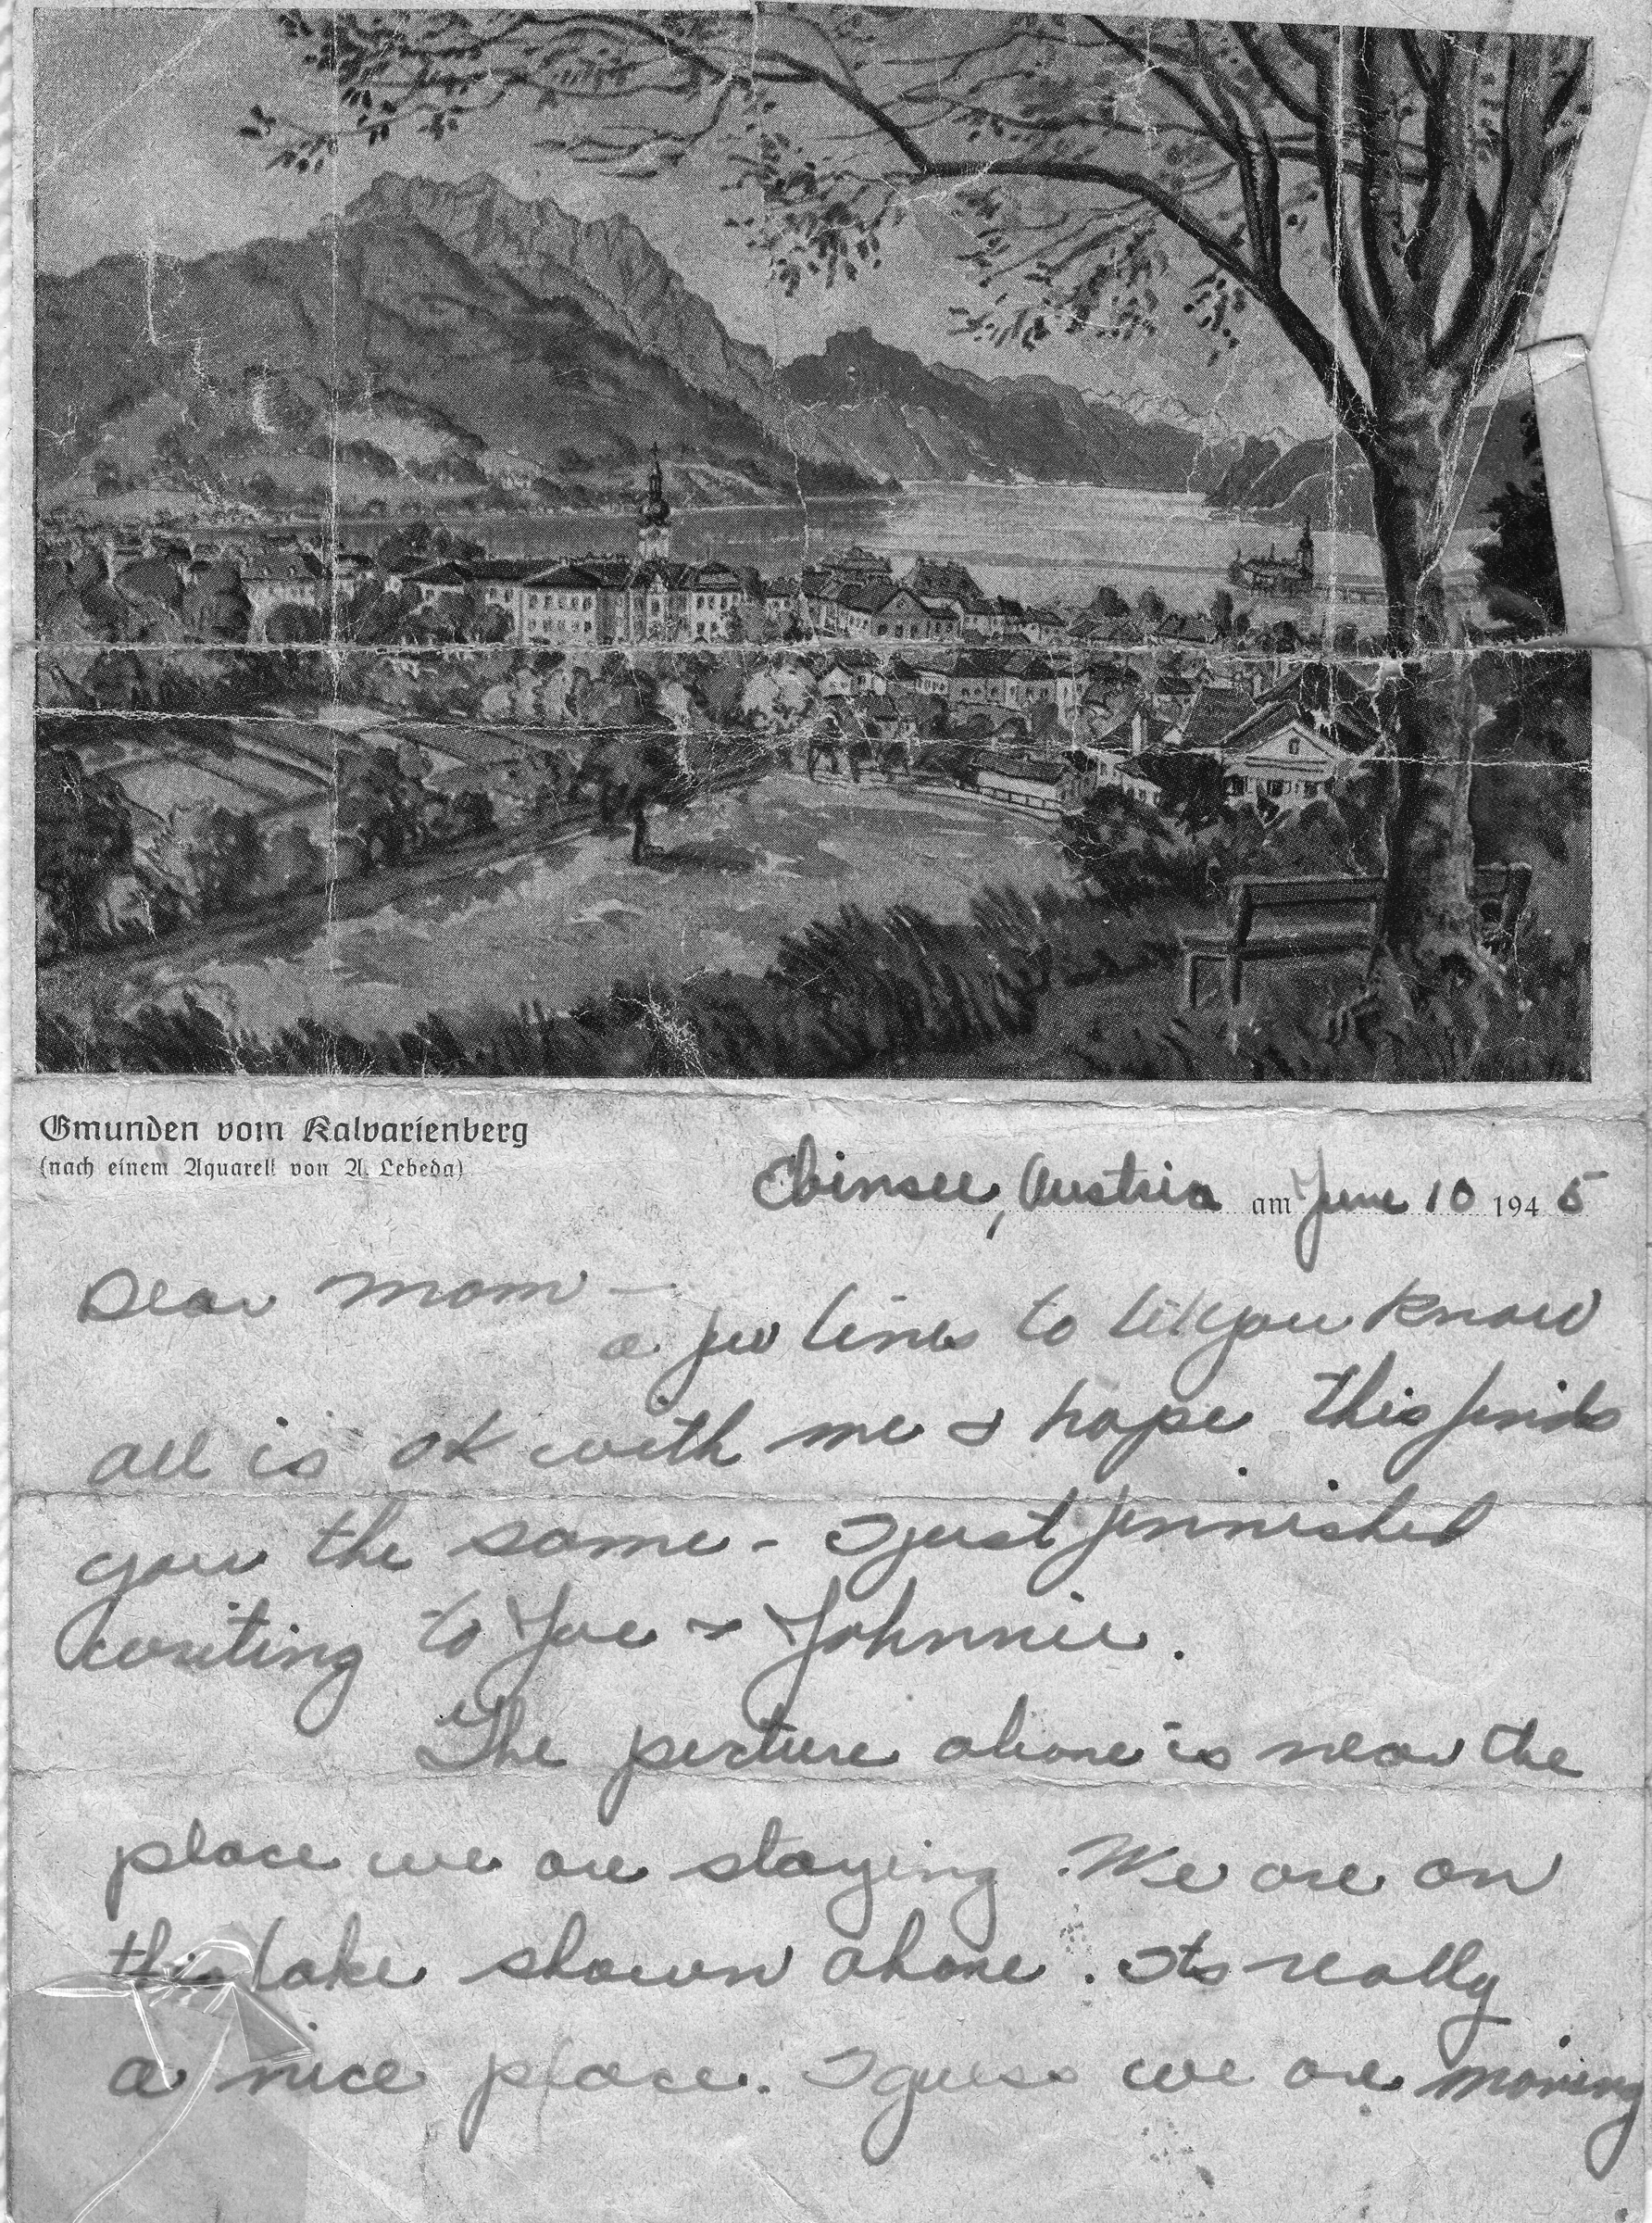 Gmunden vom Kalvarienberg
(nach einem Aquarell von A. Lebeda)
Ebinsee, Austria am June 10 1945
Dear Mom -
a few lines to let you know
all is ok with me & hope this finds
you the same - I just finnished
writing to Joe & Johnnie.
The picture above is near the
place we are staying. We are on
this lake shown above. Its really
a nice place. I guess we are moving